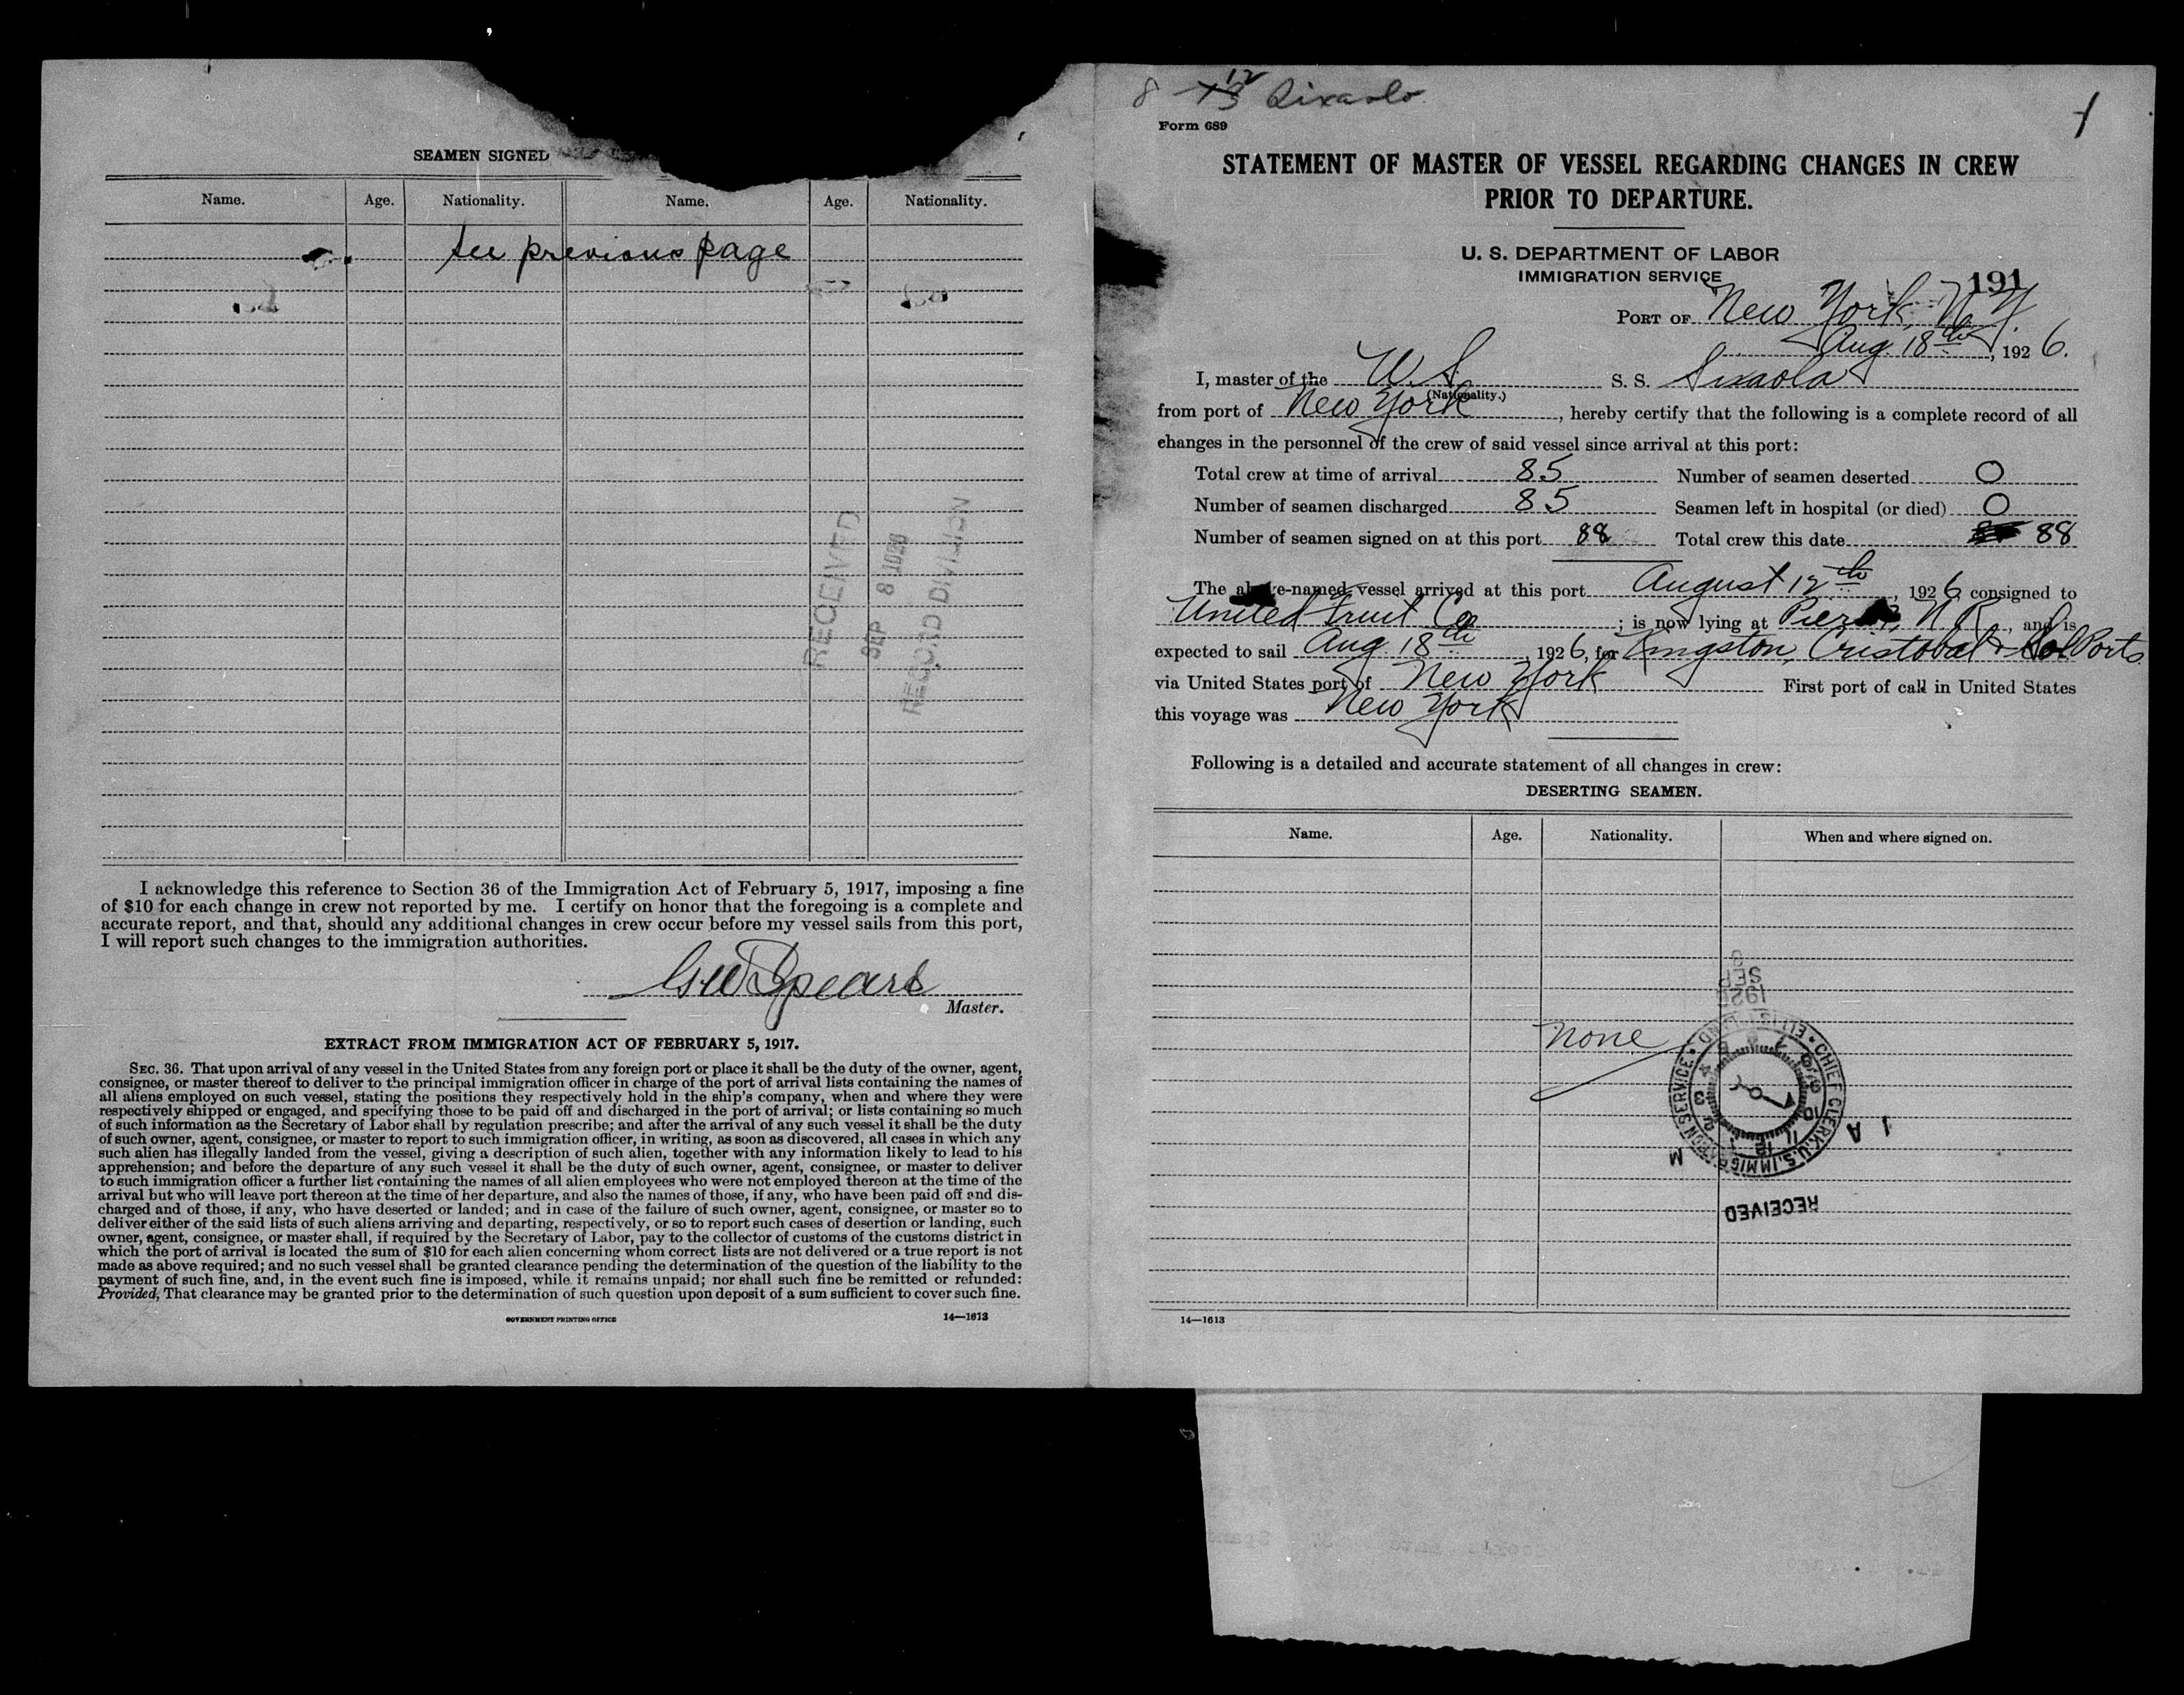 SEAMEN SIGNED
Name. Age. Nationality. Name. Age. Nationality.
See previous page
RECEIVED
SEP 8
RECORD DIVISION
I acknowledge this reference to Section 36 of the Immigration Act of February 5, 1917, imposing a fine
of $10 for each change in crew not reported by me. I certify on honor that the foregoing is a complete and
accurate report, and that, should any additional changes in crew occur before my vessel sails from this port,
I will report such changes to the immigration authorities.
Geo Spears
Master.
EXTRACT FROM IMMIGRATION ACT OF FEBRUARY 5, 1917.
SEC. 36. That upon arrival of any vessel in the United States from any foreign port or place it shall be the duty of the owner, agent,
consignee, or master thereof to deliver to the principal immigration officer in charge of the port of arrival lists containing the names of
all aliens employed on such vessel, stating the positions they respectively hold in the ship's company, when and where they were
respectively shipped or engaged, and specifying those to be paid off and discharged in the port of arrival; or lists containing so much
of such information as the Secretary of Labor shall by regulation prescribe; and after the arrival of any such vessel it shall be the duty
of such owner, agent, consignee, or master to report to such immigration officer, in writing, as soon as discovered, all cases in which any
such alien has illegally landed from the vessel, giving a description of such alien, together with any information likely to lead to his
apprehension; and before the departure of any such vessel it shall be the duty of such owner, agent, consignee, or master to deliver
to such immigration officer a further list containing the names of all alien employees who were not employed thereon at the time of the
arrival but who will leave port thereon at the time of her departure, and also the names of those, if any, who have been paid off and dis-
charged and of those, if any, who have deserted or landed; and in case of the failure of such owner, agent, consignee, or master so to
deliver either of the said lists of such aliens arriving and departing, respectively, or so to report such cases of desertion or landing, such
owner, agent, consignee, or master shall, if required by the Secretary of Labor, pay to the collector of customs of the customs district in
which the port of arrival is located the sum of $10 for each alien concerning whom correct lists are not delivered or a true report is not
made as above required; and no such vessel shall be granted clearance pending the determination of the question of the liability to the
payment of such fine, and, in the event such fine is imposed, while it remains unpaid; nor shall such fine be remitted or refunded:
Provided, That clearance may be granted prior to the determination of such question upon deposit of a sum sufficient to cover such fine.
GOVERNMENT PRINTING OFFICE 14—1613
8 12 Sixaola
1
Form 689
STATEMENT OF MASTER OF VESSEL REGARDING CHANGES IN CREW
PRIOR TO DEPARTURE.
U. S. DEPARTMENT OF LABOR
IMMIGRATION SERVICE
191
PORT OF New York, N.Y.
Aug. 18th, 1926.
I, master of the U.S. S. S. Sixaola
(Nationality.)
from port of New York, hereby certify that the following is a complete record of all
changes in the personnel of the crew of said vessel since arrival at this port:
Total crew at time of arrival 85 Number of seamen deserted 0
Number of seamen discharged 85 Seamen left in hospital (or died) 0
Number of seamen signed on at this port 88 Total crew this date 88
The above-named vessel arrived at this port August 12th, 1926 consigned to
United Fruit Co ; is now lying at Pier N R, and is
expected to sail Aug. 18th, 1926, for Kingston, Cristobal + Col Ports
via United States port of New York First port of call in United States
this voyage was New York
Following is a detailed and accurate statement of all changes in crew:
DESERTING SEAMEN.
Name. Age. Nationality. When and where signed on.
None
1926
SEP
8
CHIEF CLERK, U.S. IMMIGRATION SERVICE • ELLIS ISLAND
A M
RECEIVED
14—1613